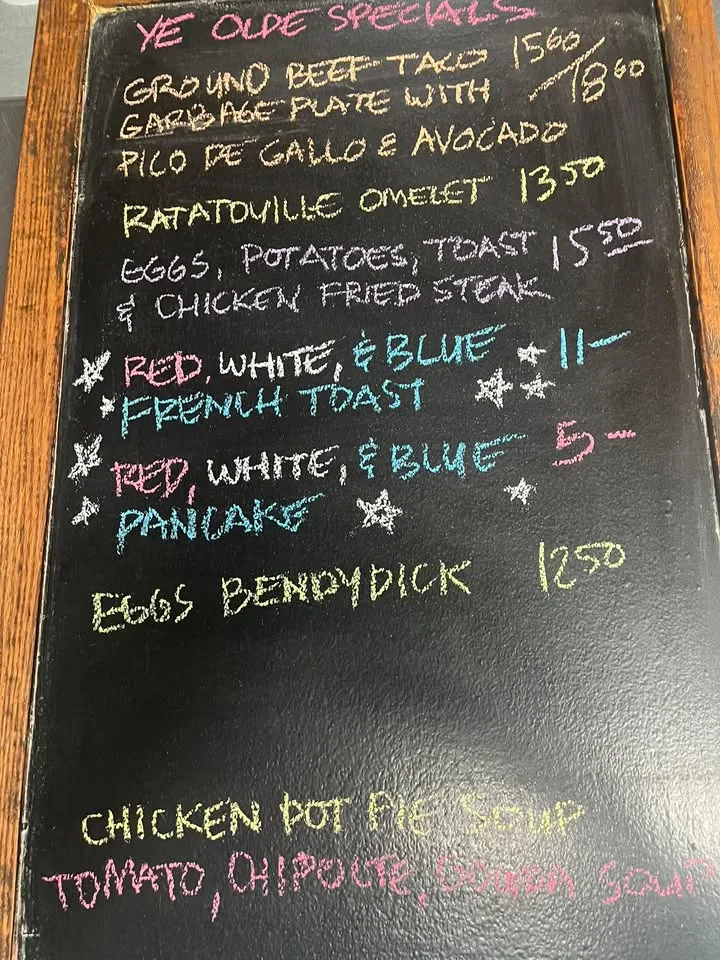 YE OLDE SPECIALS
GROUND BEEF TACO 1560/1860
GARBAGE PLATE WITH
PICO DE GALLO & AVOCADO
RATATOUILLE OMELET 1350
EGGS, POTATOES, TOAST 1550
& CHICKEN FRIED STEAK
RED, WHITE, & BLUE 11-
FRENCH TOAST
RED, WHITE, & BLUE 5-
PANCAKE
EGGS BENDYDICK 1250
CHICKEN POT PIE SOUP
TOMATO, CHIPOLTE, GOUDA SOUP